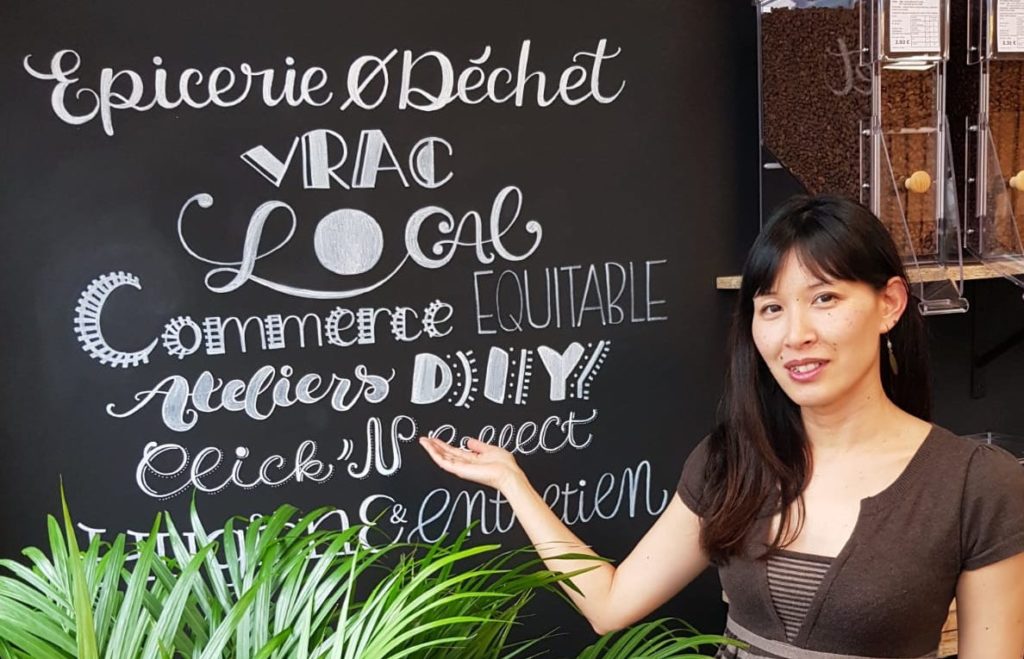 Epicerie Ø Déchet
VRAC
Local
Commerce EQUITABLE
Ateliers DIY
Click 'N
& entretien